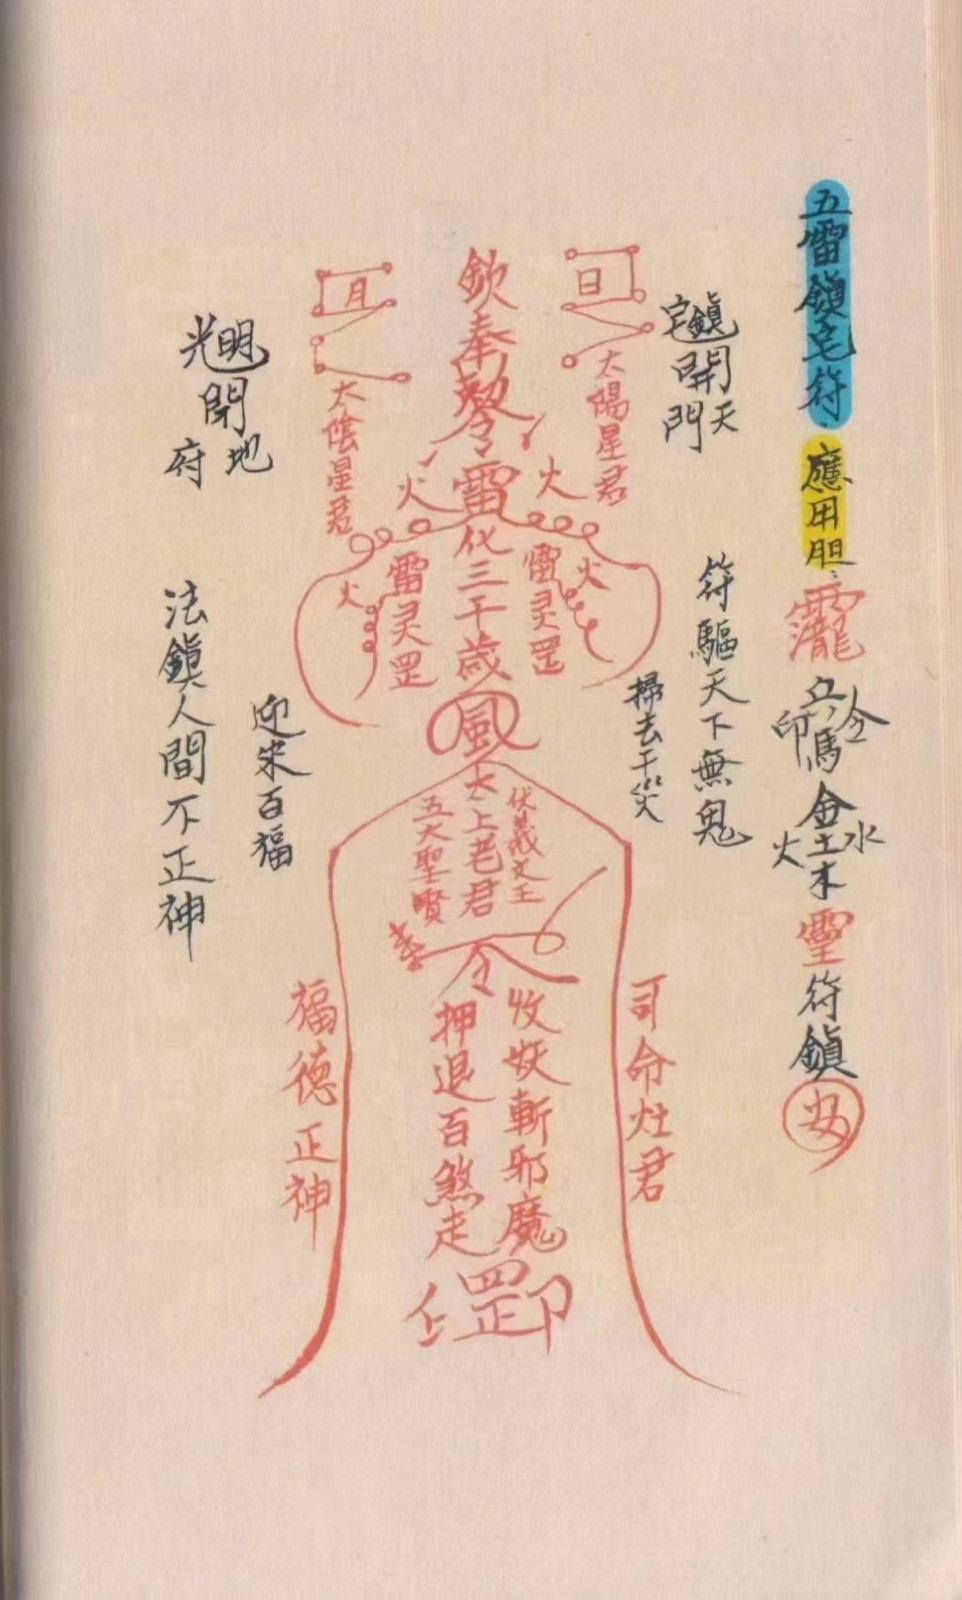 五雷鎮宅符
應用胆:
馬
金水木火土
符鎮
安
鎮宅開天門
符驅天下無鬼
掃去千災
日
太陽星君
欽奉
令
雷
火
火
化三千歲
雷灵罡
雷灵罡
火
火
風
太上老君
伏羲文王
五大聖賢
奉
令
收妖斬邪魔
押退百煞走
罡印
司命灶君
福德正神
月
太陰星君
光明閉地府
迎來百福
法鎮人間不正神